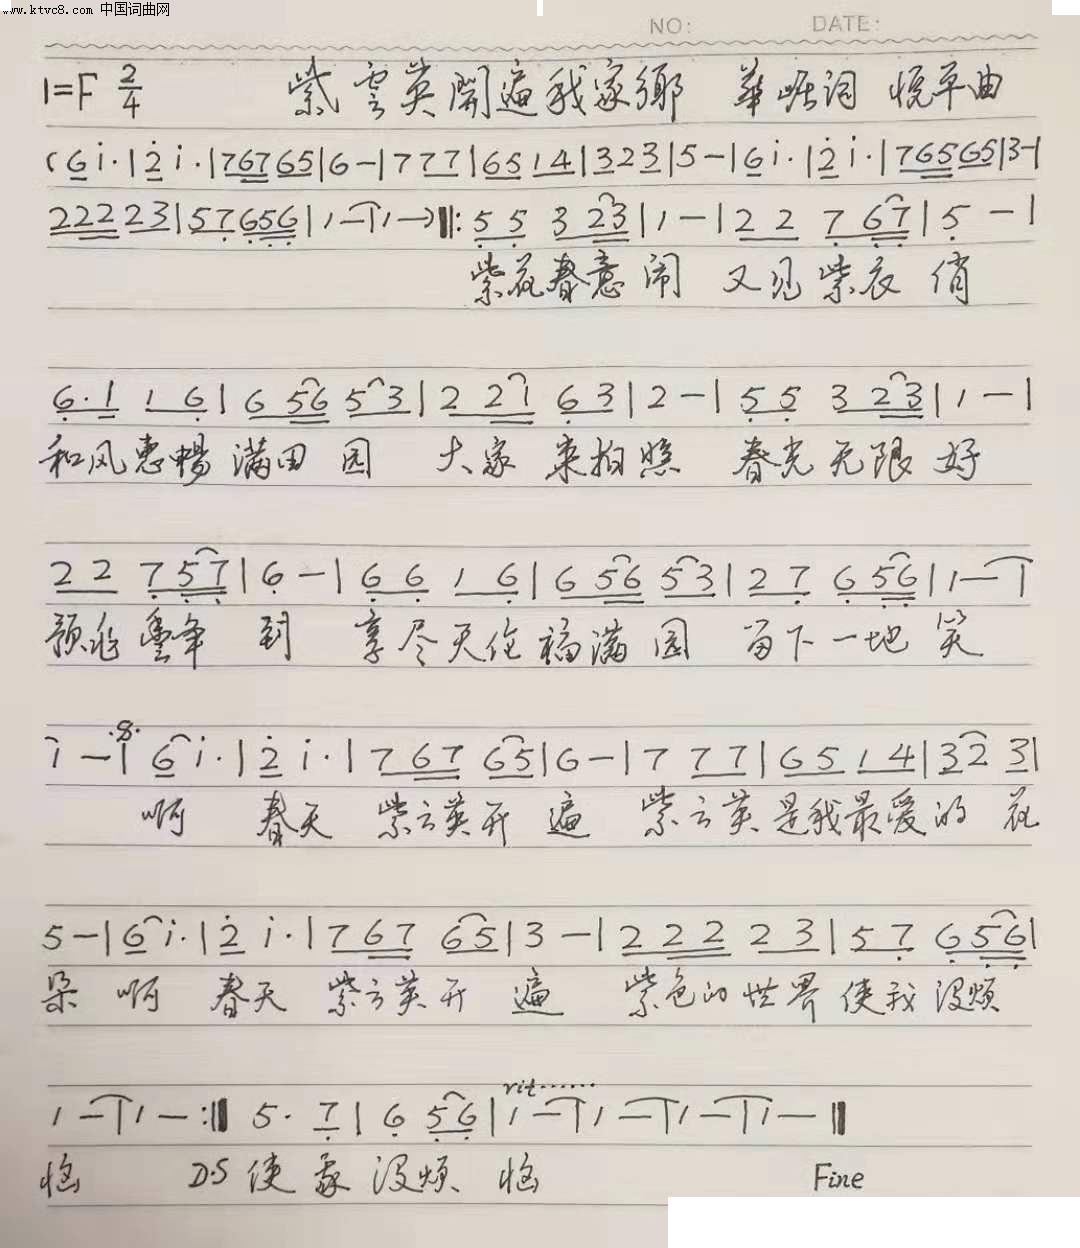 www.ktvc8.com 中国词曲网
NO: DATE:
1=F 2/4 紫雲英開遍我家鄉 華崌词 悦平曲
(6 i·|2 i·|767 65|6-|7 77|65 14|3 2 3|5-|6 i·|2 i·|765 65|3-|
222 23|57 656|1-|1-)‖: 5 5 3 23|1-|2 2 7 67|5-|
紫花春意闹 又见紫衣俏
6·1 1 6|6 56 53|2 21 63|2-|5 5 3 23|1-|
和风惠暢满田园 大家来拍照 春光无限好
2 2 7 57|6-|6 6 1 6|6 56 53|2 7 6 56|1-|
预兆豐年到 享尽天伦福满园 留下一地笑
1-| 6 i·|2 i·|7 67 65|6-|7 77|65 14|3 2 3|
啊 春天 紫云英开遍 紫云英是我最爱的花
5-|6 i·|2 i·|7 67 65|3-|2 22 23|5 7 6 56|
朵 啊 春天 紫云英开遍 紫色的世界使我没烦
1-|1-:‖ 5· 7|6 56|rit······ 1-|1-|1-|1-‖
恼 D.S 使我没烦恼 Fine